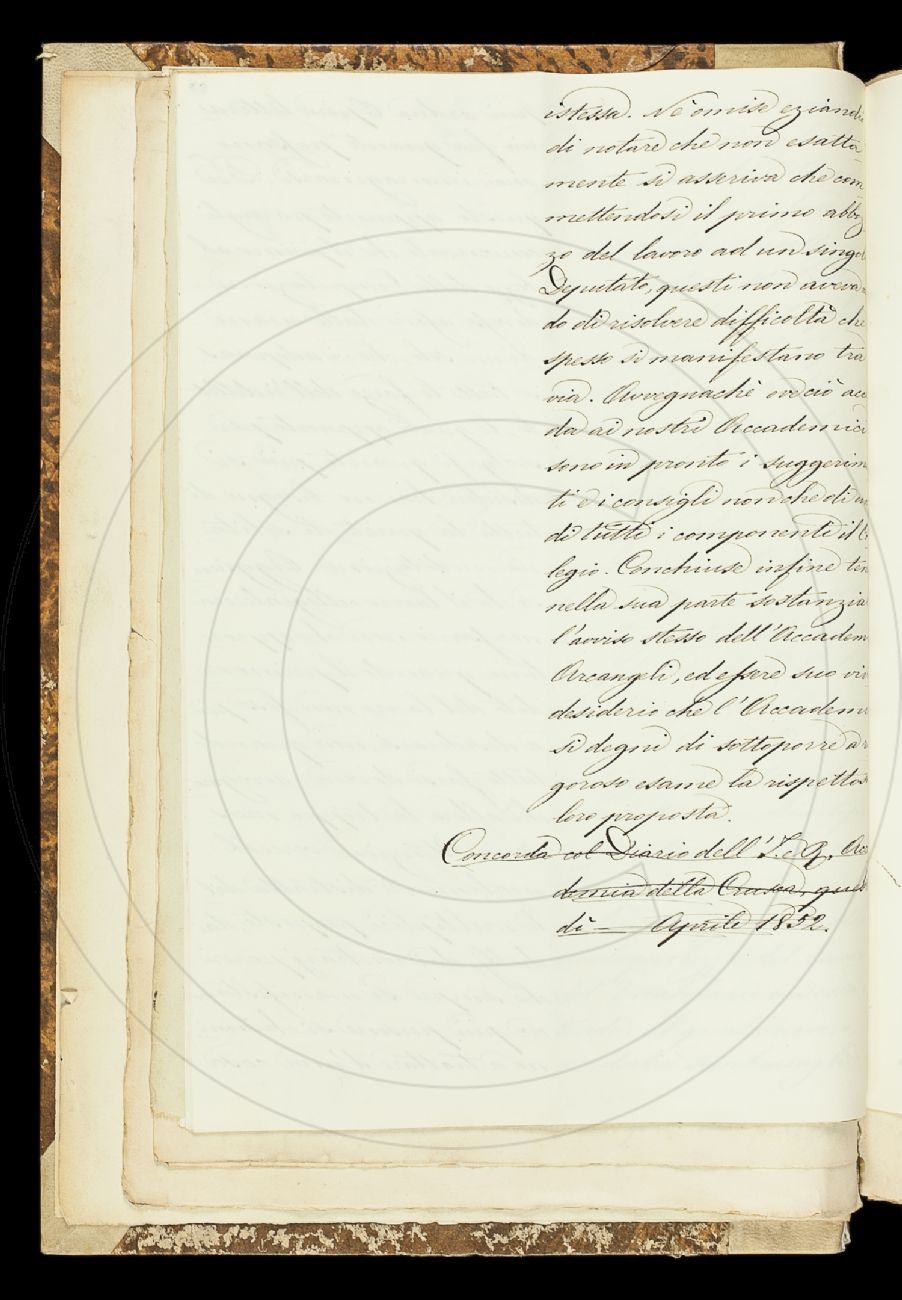 istessa. Nè omise eziandi
di notare che non esatta-
mente si asseriva che com
mettendosi il primo abbo
zo del lavoro ad un singol
Deputato, questi non aveva
do di risolvere difficoltà che
spesso si manifestano tra
via. Avvegnachè ove ciò acc
da ai nostri Accademici
sono in pronto i suggerim
ti e i consigli non che di
di tutti i componenti il
legio. Conchiuse infine ten
nella sua parte sostanzia
l'avviso stesso dell'Accadem
Arcangeli, ed essere suo viv
desiderio che l'Accadem
si degni di sottoporre a
goroso esame la rispettos
loro proposta.
Concorda col Diario dell'I. e R. Acc
demia della Crusca, ques
dì — Aprile 1852.